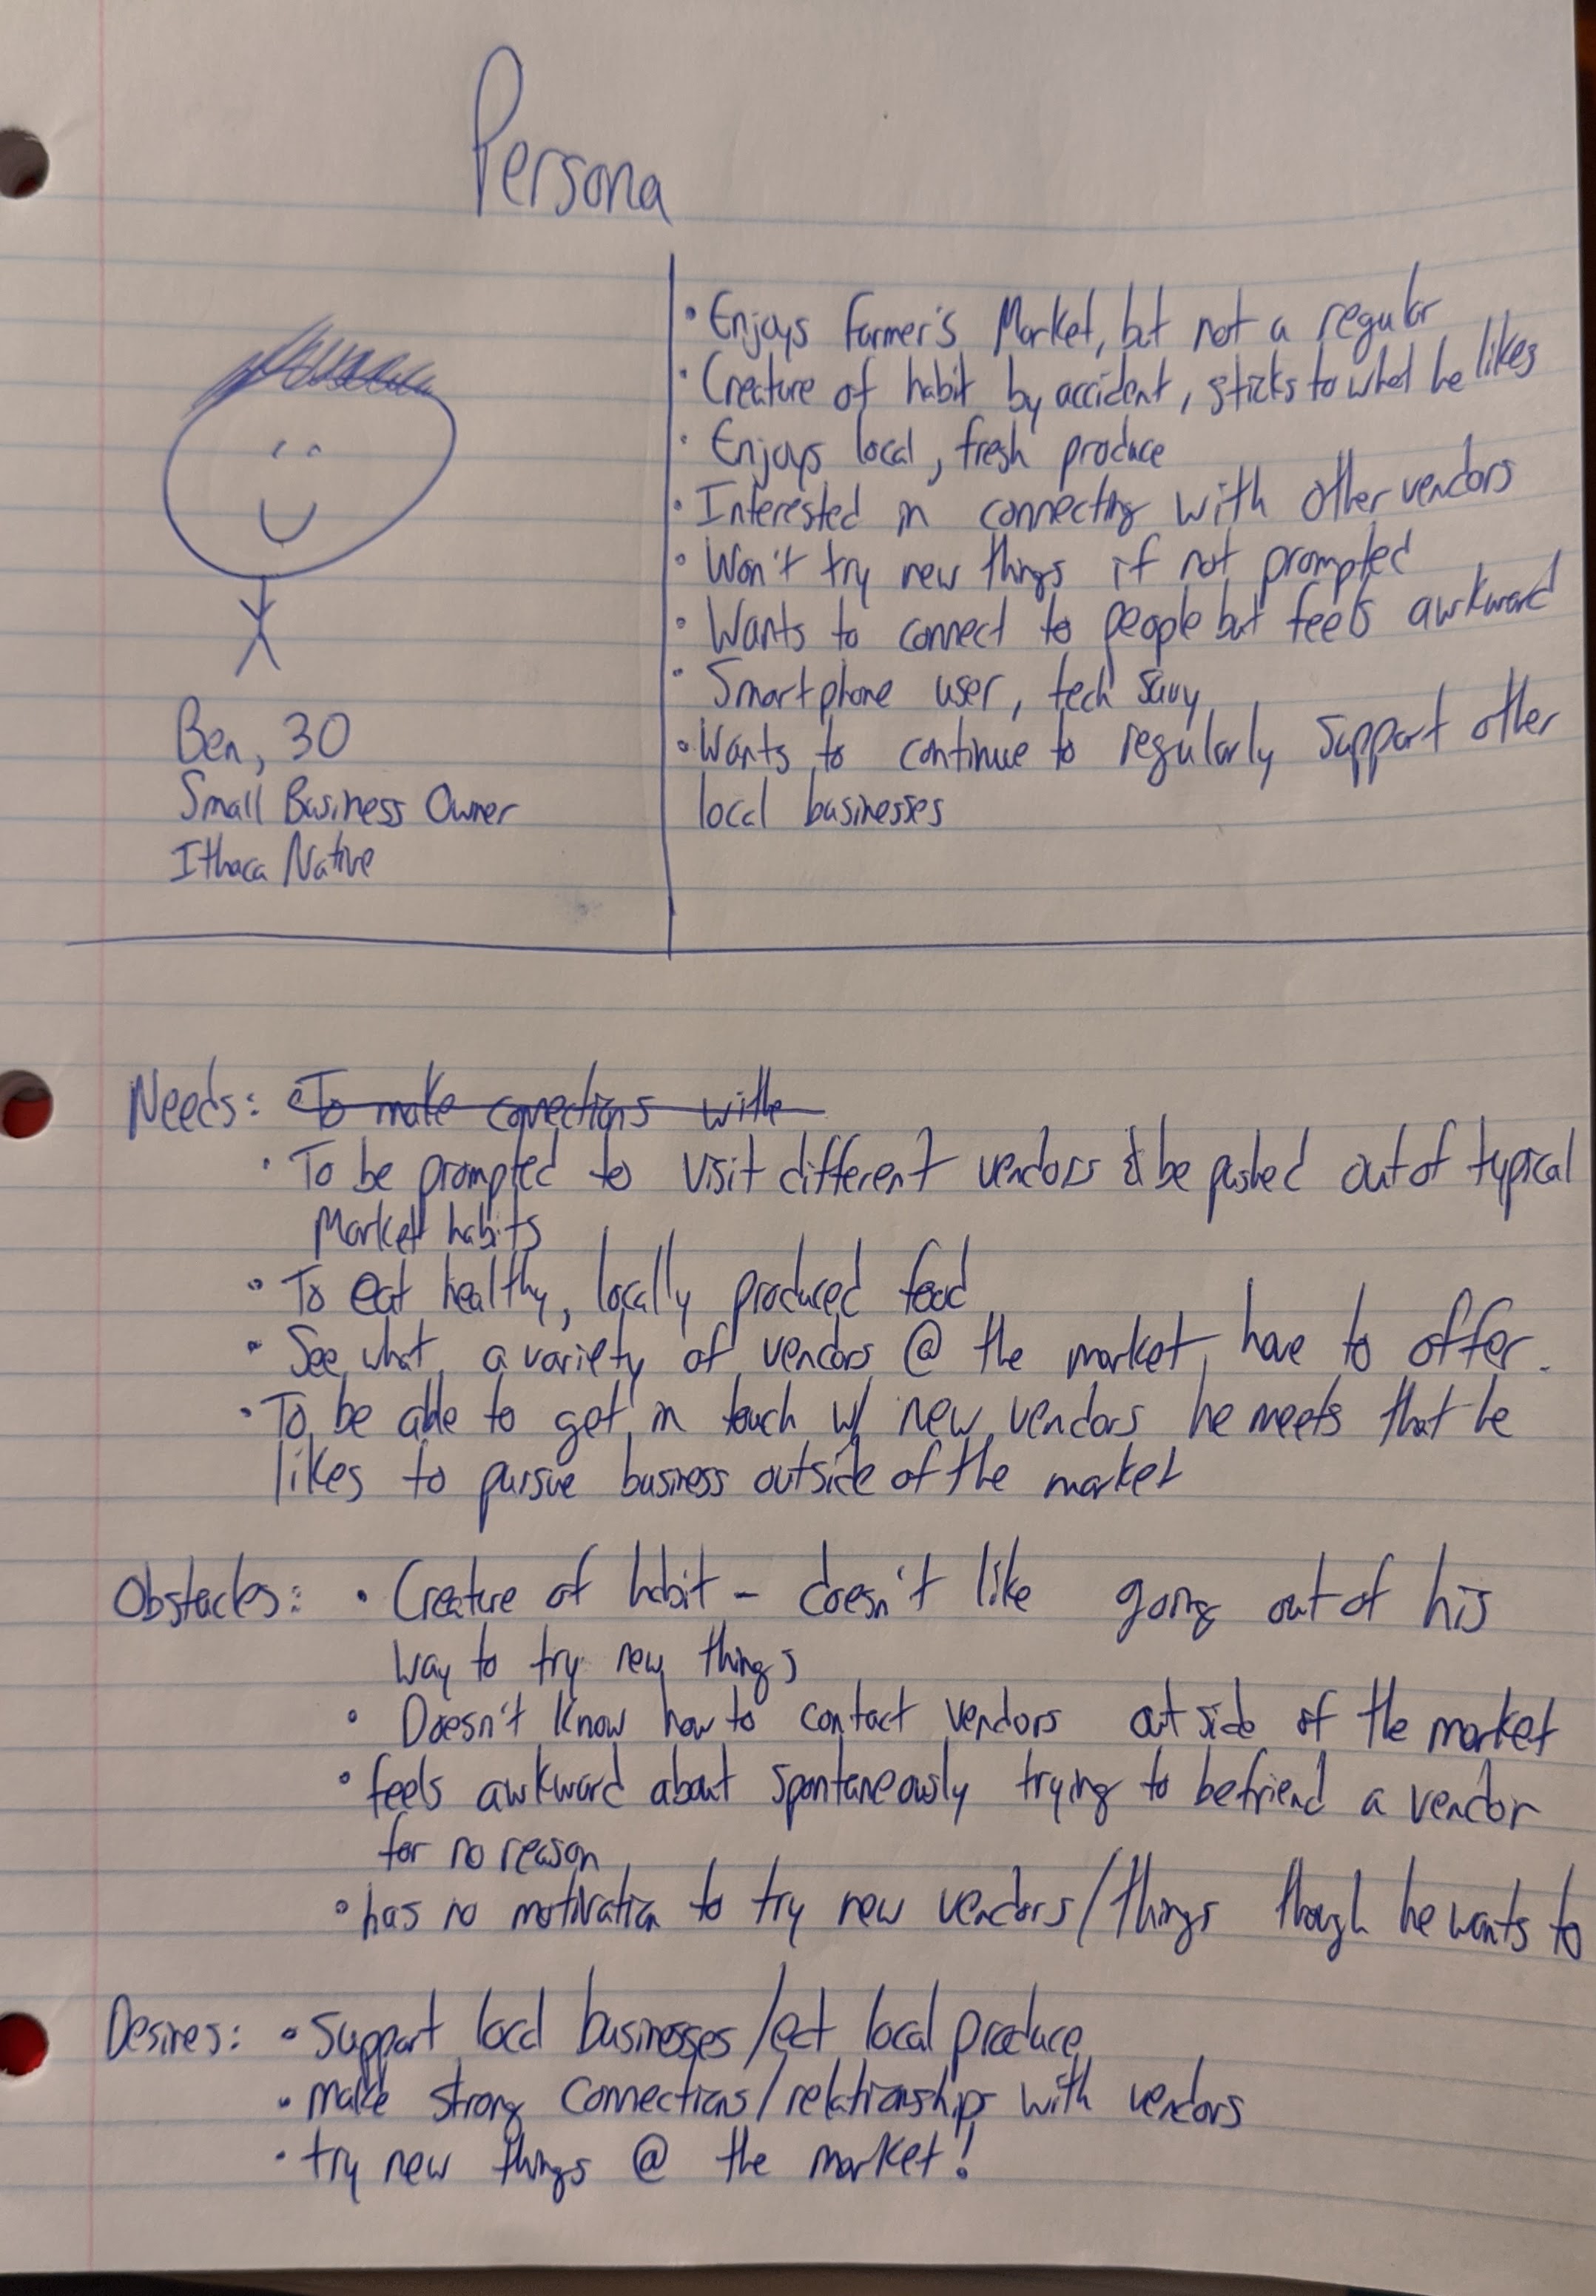 Persona
Ben, 30
Small Business Owner
Ithaca Native
• Enjoys Farmer's Market, but not a regular
• Creature of habit by accident, sticks to what he likes
• Enjoys local, fresh produce
• Interested in connecting with other vendors
• Won't try new things if not prompted
• Wants to connect to people but feels awkward
• Smartphone user, tech savy
• Wants to continue to regularly support other
local businesses
Needs: • To make connections with
• To be prompted to visit different vendors & be pushed out of typical
Market habits
• To eat healthy, locally produced food
• See what a variety of vendors @ the market have to offer.
• To be able to get in touch w/ new vendors he meets that he
likes to pursue business outside of the market
Obstacles: • Creature of habit - doesn't like going out of his
way to try new things
• Doesn't know how to contact vendors outside of the market
• feels awkward about spontaneously trying to befriend a vendor
for no reason
• has no motivation to try new vendors/things though he wants to
Desires: • Support local businesses/eat local produce
• make strong connections/relationships with vendors
• try new things @ the market!